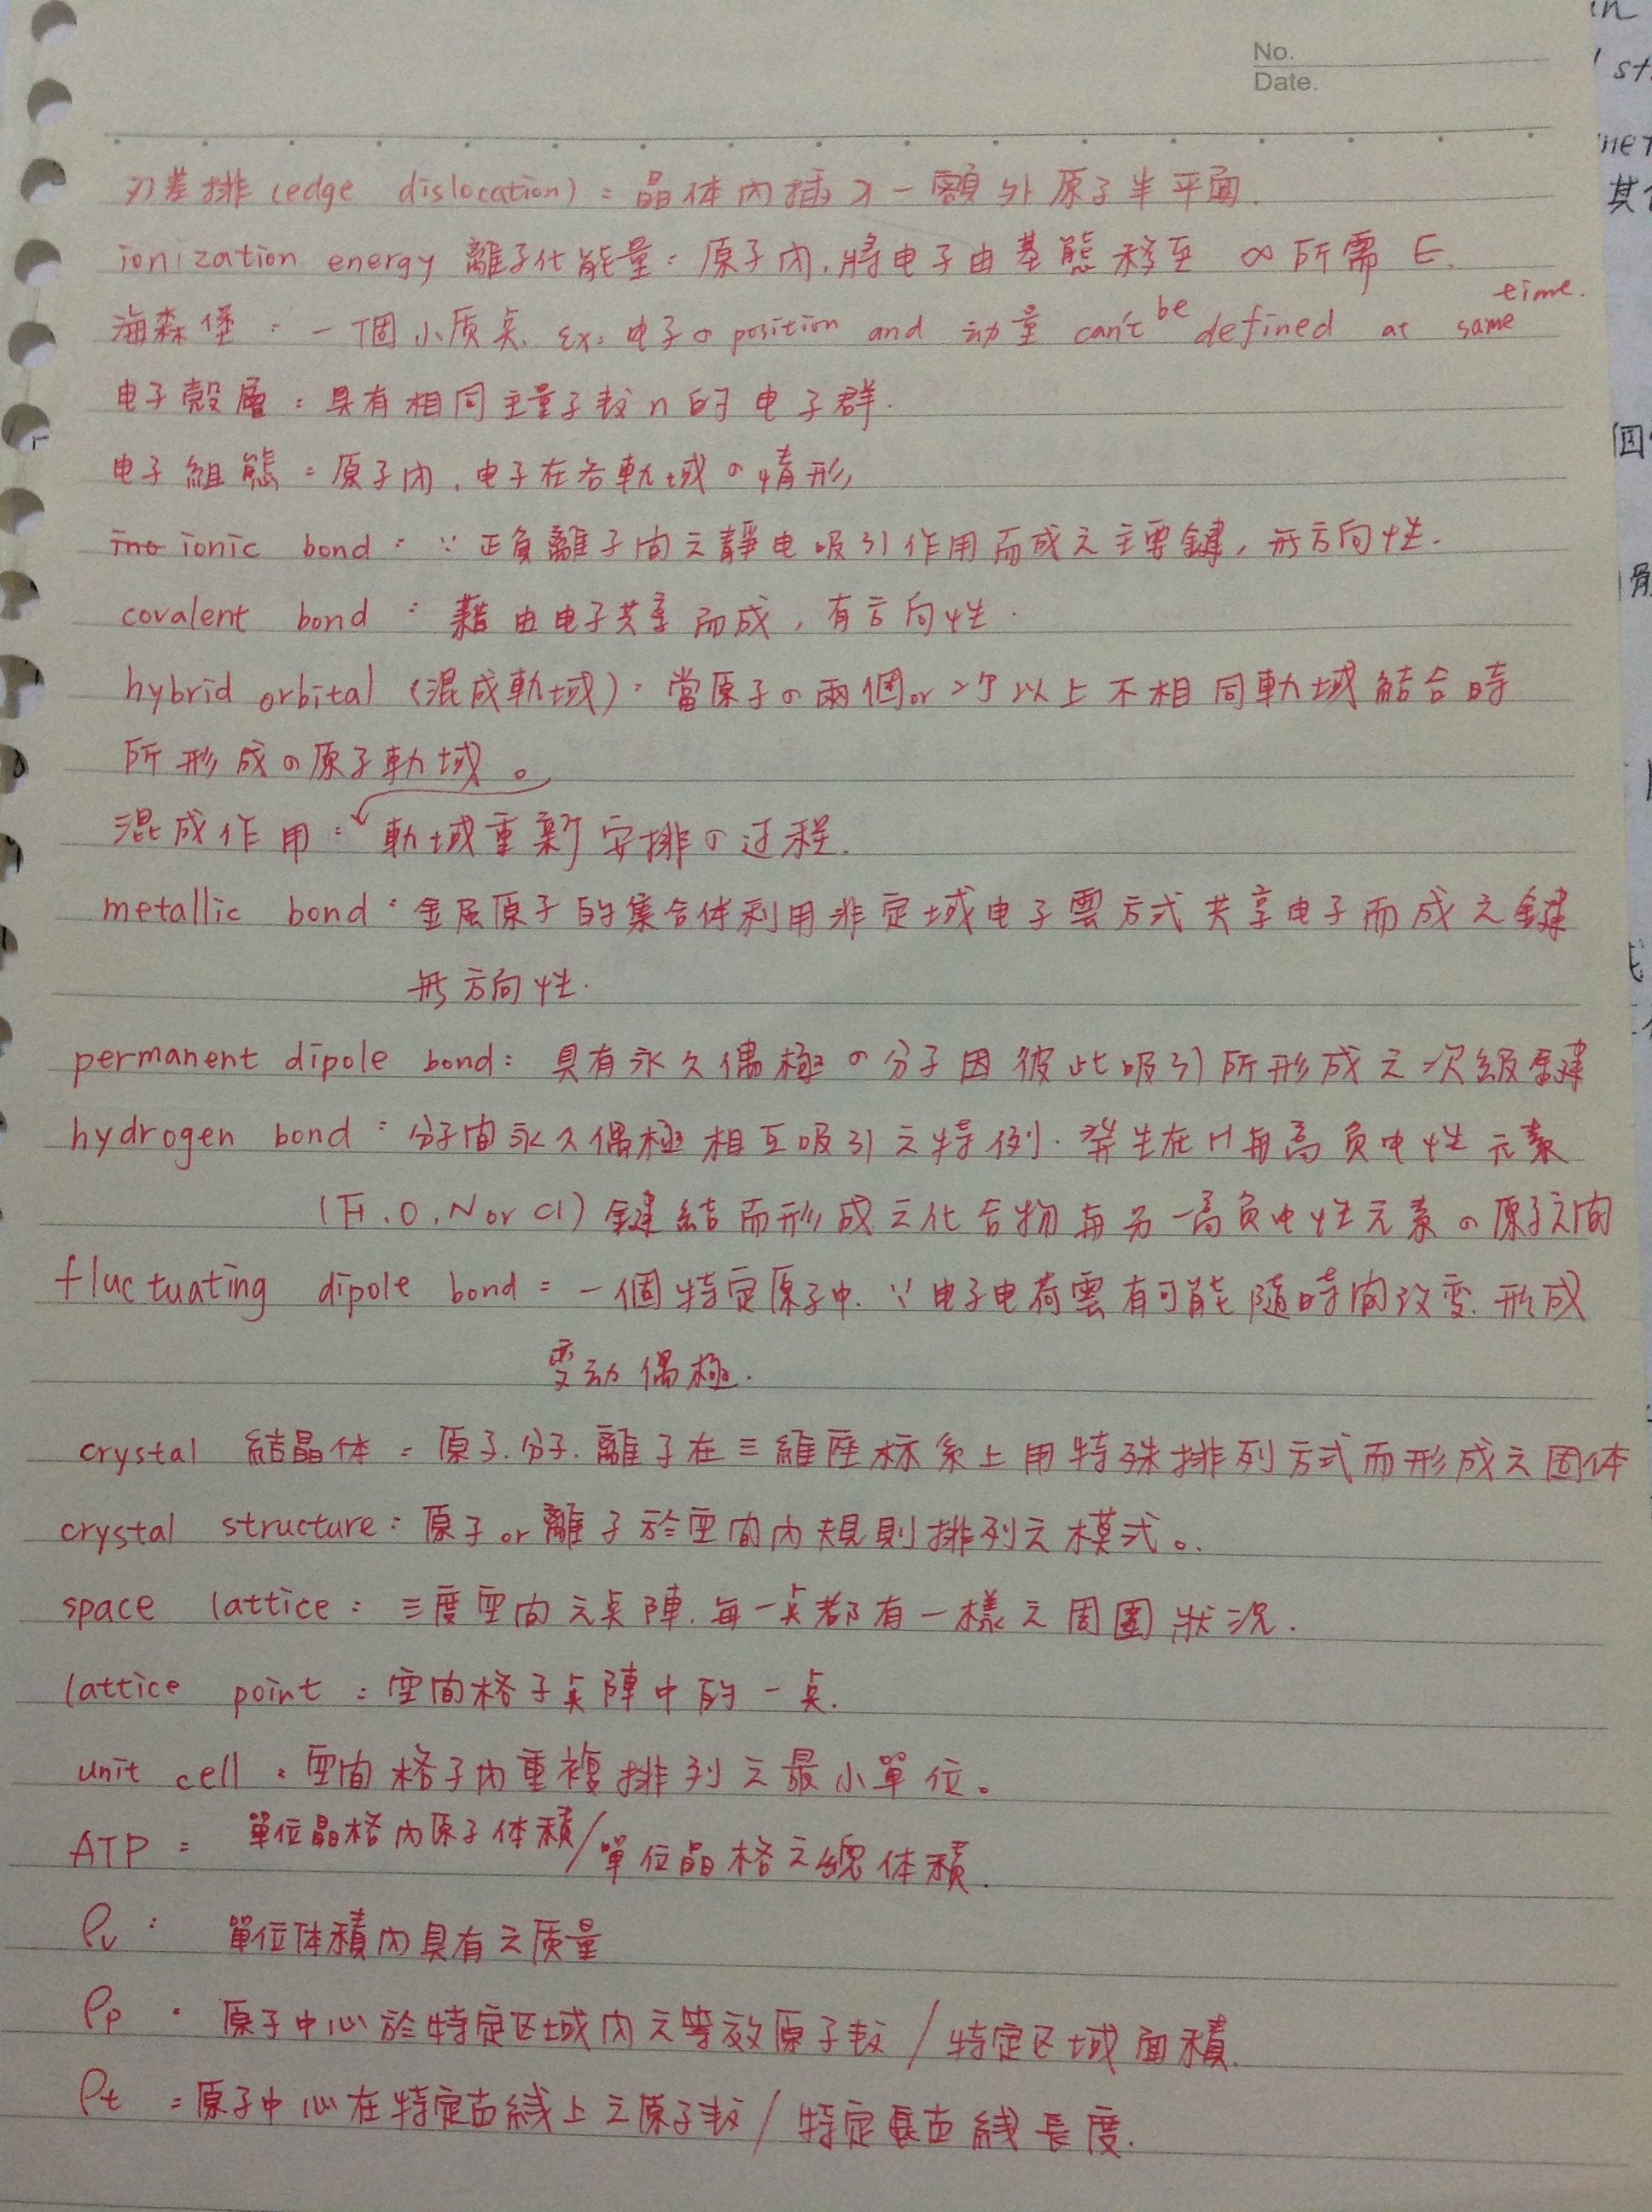 No.
Date.
刃差排 (edge dislocation) = 晶体內插入一額外原子半平面.
ionization energy 離子化能量: 原子內,將电子由基態移至 ∞ 所需 E.
海森堡 : 一個小质点. ex: 电子の position and 动量 can't be defined at same time.
电子殼層 : 具有相同主量子数 n 的电子群.
电子組態 = 原子內,电子在各軌域の情形
ino ionic bond : ∵ 正負離子间之靜电吸引作用而成之主要鍵, 旡方向性.
covalent bond : 藉由电子共享而成, 有方向性.
hybrid orbital (混成軌域): 當原子の兩個or 2个以上不相同軌域結合時
所形成の原子軌域。
混成作用 : 軌域重新安排の过程.
metallic bond : 金属原子的集合体利用非定域电子雲方式共享电子而成之鍵
旡方向性.
permanent dipole bond: 具有永久偶極の分子因彼此吸引所形成之次級鍵
hydrogen bond : 分子间永久偶極相互吸引之特例. 發生在H与高負电性元素
(F, O, N or Cl) 鍵結而形成之化合物与另一高負电性元素の原子之间
fluctuating dipole bond = 一個特定原子中. ∵ 电子电荷雲有可能隨時间改变. 形成
变动偶極.
crystal 結晶体 = 原子.分子.離子在三維座标系上用特殊排列方式而形成之固体
crystal structure: 原子or離子於空间內規則排列之模式。
space lattice: 三度空间之点陣. 每一点都有一樣之周圍狀況.
lattice point : 空间格子点陣中的一点.
unit cell : 空间格子內重複排列之最小單位。
ATP = 單位晶格內原子体積/單位晶格之總体積.
ρv : 單位体積內具有之质量
ρp : 原子中心於特定区域內之等效原子数 / 特定区域面積.
ρt = 原子中心在特定直线上之原子数 / 特定直線長度.